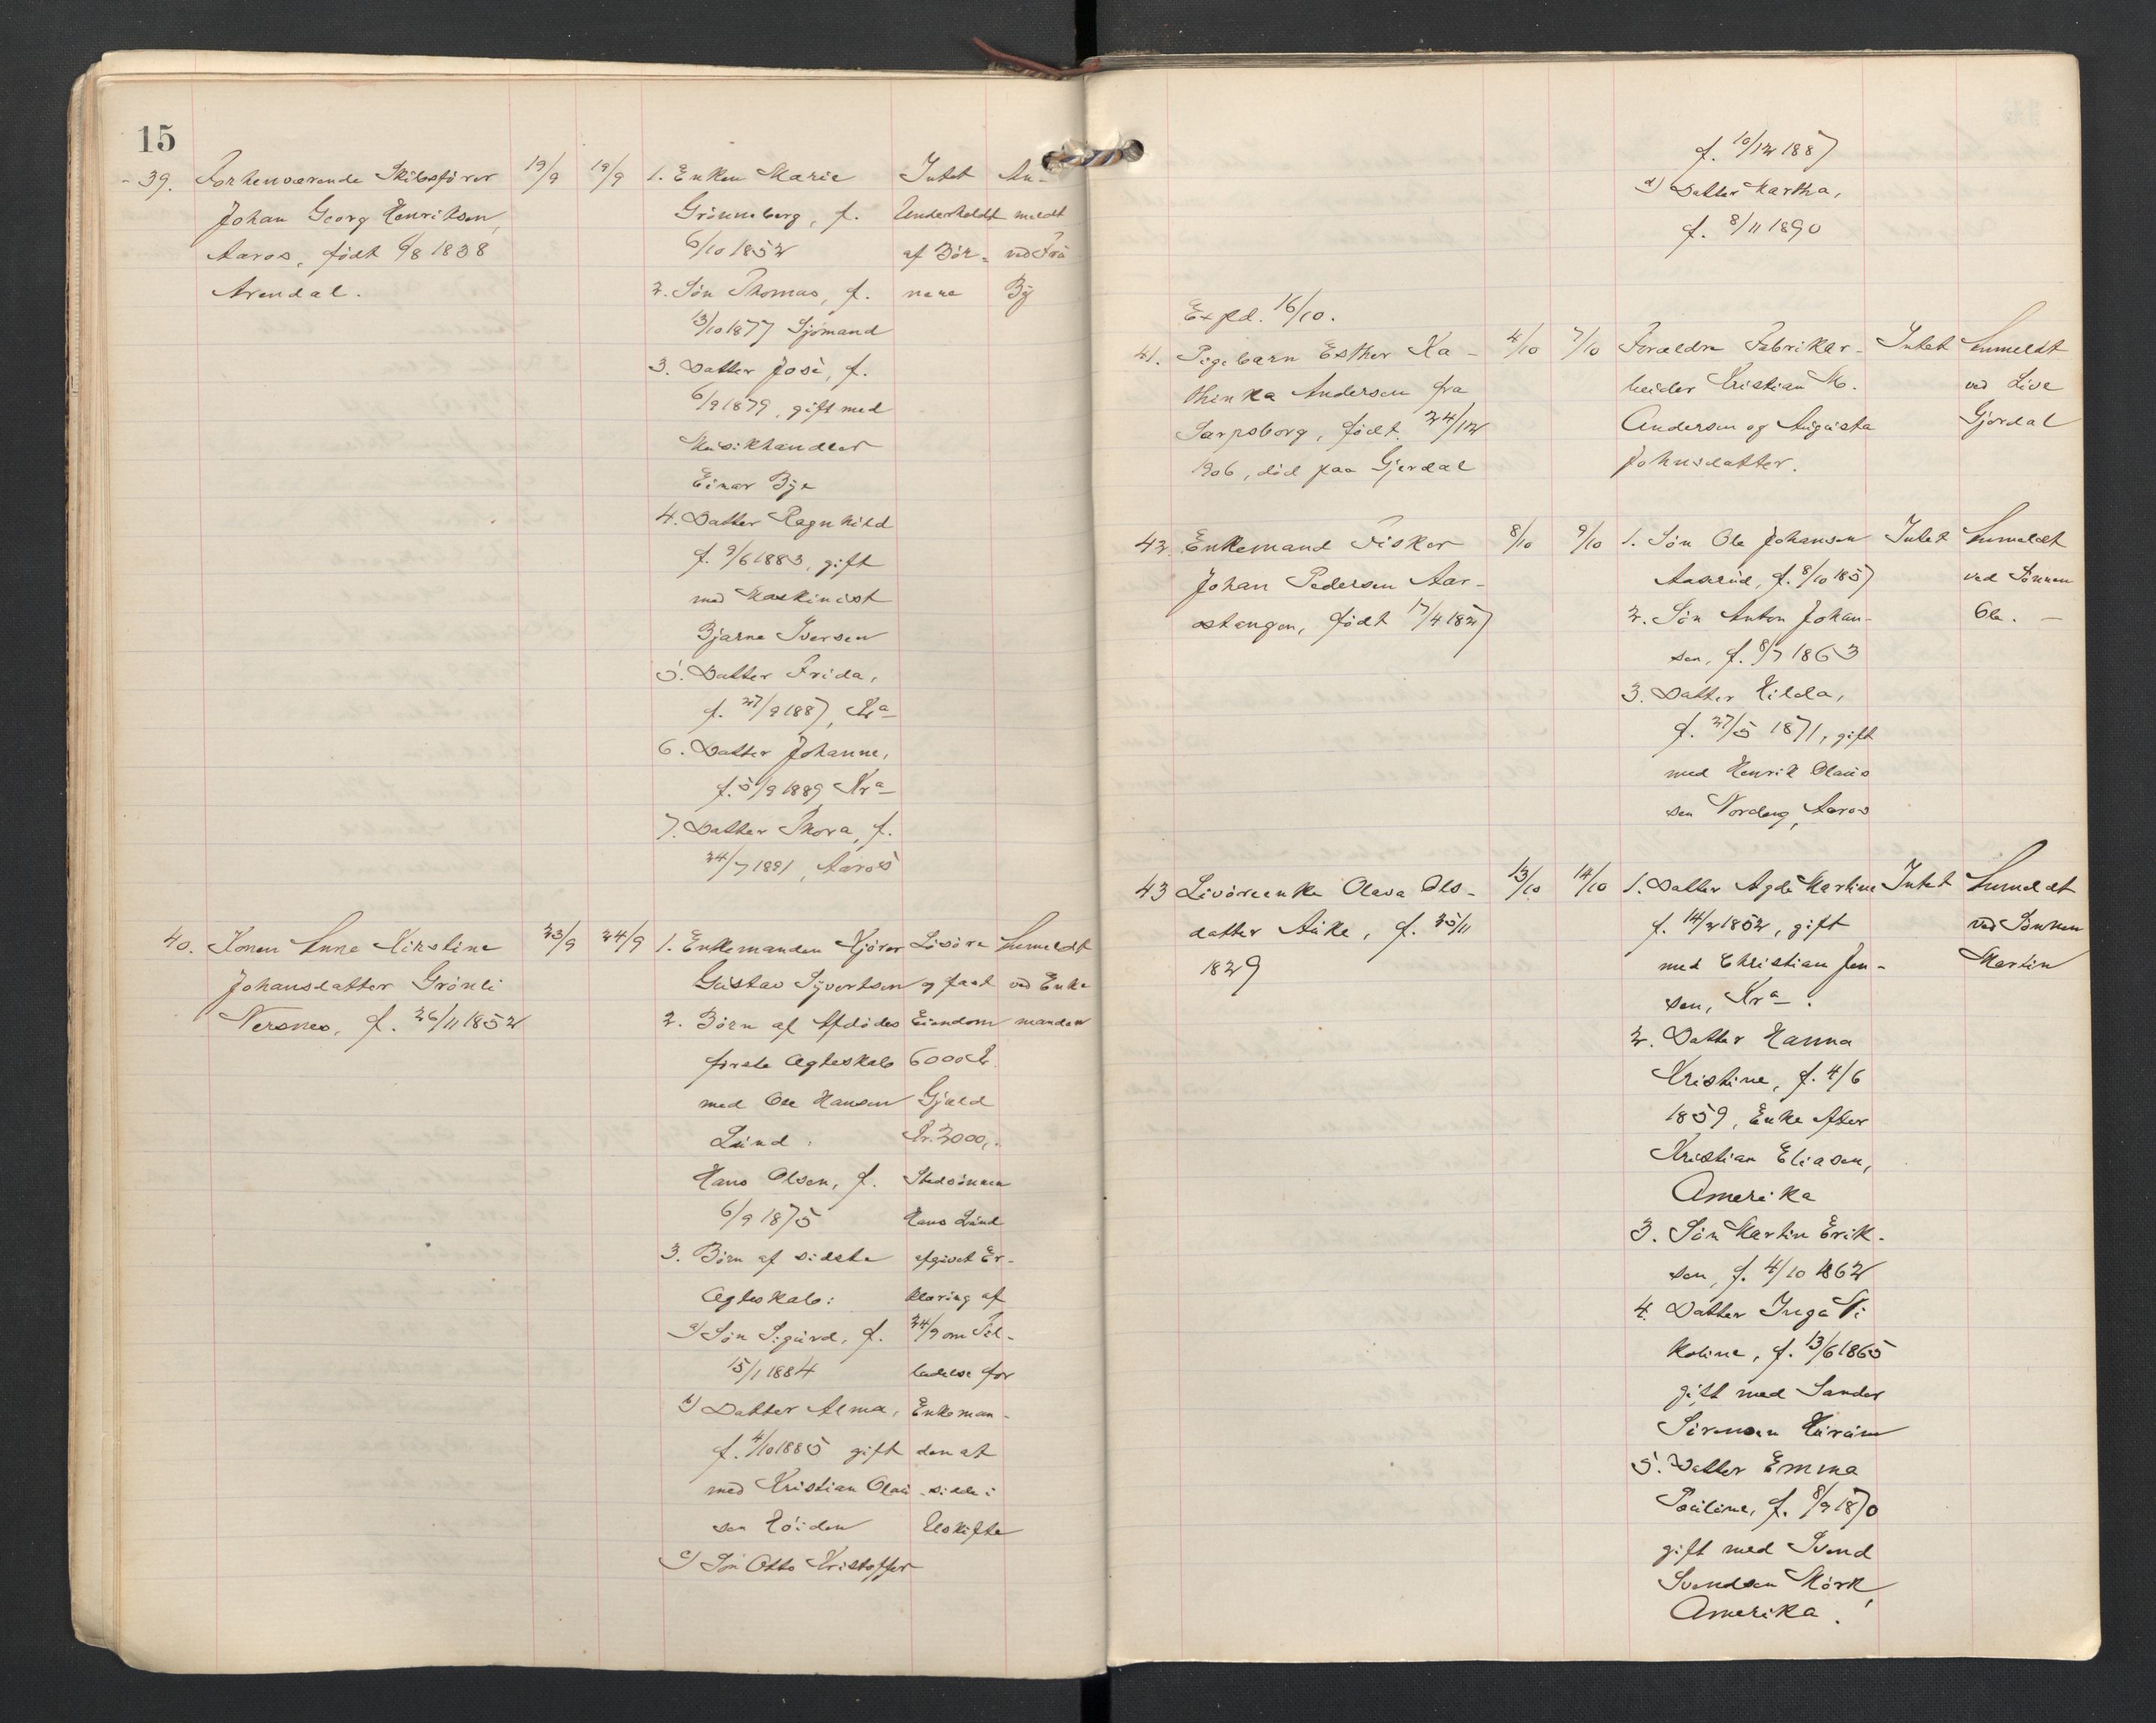 15
39. Forhenværende Skibsfører
Johan Georg Henriksen,
Aaros, født 6/8 1838
Arendal.
19/9
19/9
1. Enken Marie
Grönneberg, f.
6/10 1852
2. Sön Thomas, f.
13/10 1877 Sjömand
3. Datter José, f.
6/9 1879, gift med
Musikhandler
Einar Bye
4. Datter Ragnhild
f. 9/6 1883, gift
med Maskinist
Bjarne Iversen
5. Datter Frida,
f. 27/9 1887, Kra
6. Datter Johanne,
f. 5/9 1889 Kra
7. Datter Thora, f.
24/7 1891, Aaros
Intet
Underholdt
af Bör-
nene
An-
meldt
ved Fru
Bÿ
40. Konen Anne Kirstine
Johansdatter Grönli
Nersnes, f. 26/11 1852
23/9
24/9
1. Enkemanden Kjörer
Gustav Syvertsen
2. Börn af Afdödes
förste Ægteskab
med Ole Hansen
Lund:
Hans Olsen, f.
6/9 1875
3. Börn af sidste
Ægteskab:
a) Sön Sigurd, f.
15/1 1884
b) Datter Alma,
f. 4/10 1885 gift
med Kristian Olau
sen Höiden
c) Sön Otto Kristoffer
Lösöre
og fast
Eiendom
6000 Kr.
Gjæld
Kr. 2000,-
Stedsönnen
Hans Lund
afgivet Er-
klæring af
24/9 om Til-
ladelse for
Enkeman-
den at
sidde i
Uskifte
Anmeldt
ved Enke
manden
f. 10/12 1887
d) Datter Martha,
f. 8/11 1890
Expd. 16/10.
41. Pigebarn Esther Ka-
thinka Andersen fra
Sarpsborg, født 24/12
1906, död paa Gjerdal
4/10
7/10
Forældre Fabrikar-
beider Kristian M.
Andersen og Augusta
Johnsdatter.
Intet
Anmeldt
ved Live
Gjerdal
42. Enkemand Fisker
Johan Pedersen Aar-
ostangen, født 17/4 1827
8/10
9/10
1. Sön Ole Johansen
Aaserud, f. 8/10 1857
2. Sön Anton Johan-
sen, f. 8/7 1863
3. Datter Hilda,
f. 27/5 1871, gift
med Henrik Olaus
sen Nordeng, Aaros
Intet
Anmeldt
ved Sönnen
Ole. -
43 Livöreenke Olava Ols-
datter Auke, f. 25/11
1829
13/10
14/10
1. Datter Agde Martine
f. 14/2 1852, gift
med Christian Jen-
sen, Kra.
2. Datter Hanna
Kristine, f. 4/6
1859, Enke efter
Kristian Eliasen,
Amerika
3. Sön Martin Erik-
sen, f. 4/10 1862
4. Datter Inga Ni
koline, f. 13/6 1865
gift med Sander
Sörensen Hurum
5. Datter Emma
Pauline, f. 8/9 1870
gift med Svend
Svendsen Mörk,
Amerika.
Intet
Anmeldt
ved Sönnen
Martin